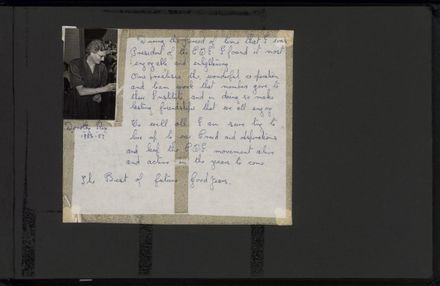 "During the period of time that I was
President of the C.D.F. I found it most
enjoyable and enlightening
One realises the wonderful co-operation
and team work that members give to
their Institute and in doing so make
lasting friendships that we all enjoy
We will all I am sure try to
live up to our Creed and Aspirations
and keep the movement alive
and active in the years to come.
The Best of future Good years.
Dorothy